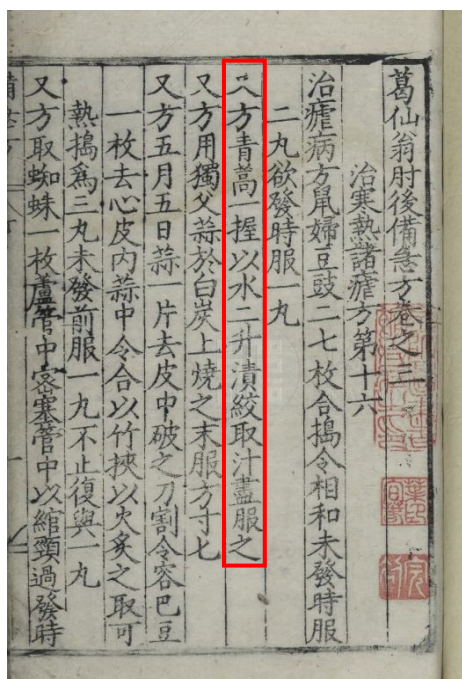 葛仙翁肘後備急方卷之三
治寒熱諸瘧方第十六
治瘧病方鼠婦豆豉二七枚合搗令相和未發時服
二丸欲發時服一丸
又方青蒿一握以水二升漬絞取汁盡服之
又方用獨父蒜於白炭上燒之末服方寸匕
又方五月五日蒜一片去皮中破之刀割令容巴豆
一枚去心皮内蒜中令合以竹挾以火炙之取可
熱搗爲三丸未發前服一丸不止復與一丸
又方取蜘蛛一枚蘆管中密塞管中以綰頸過發時